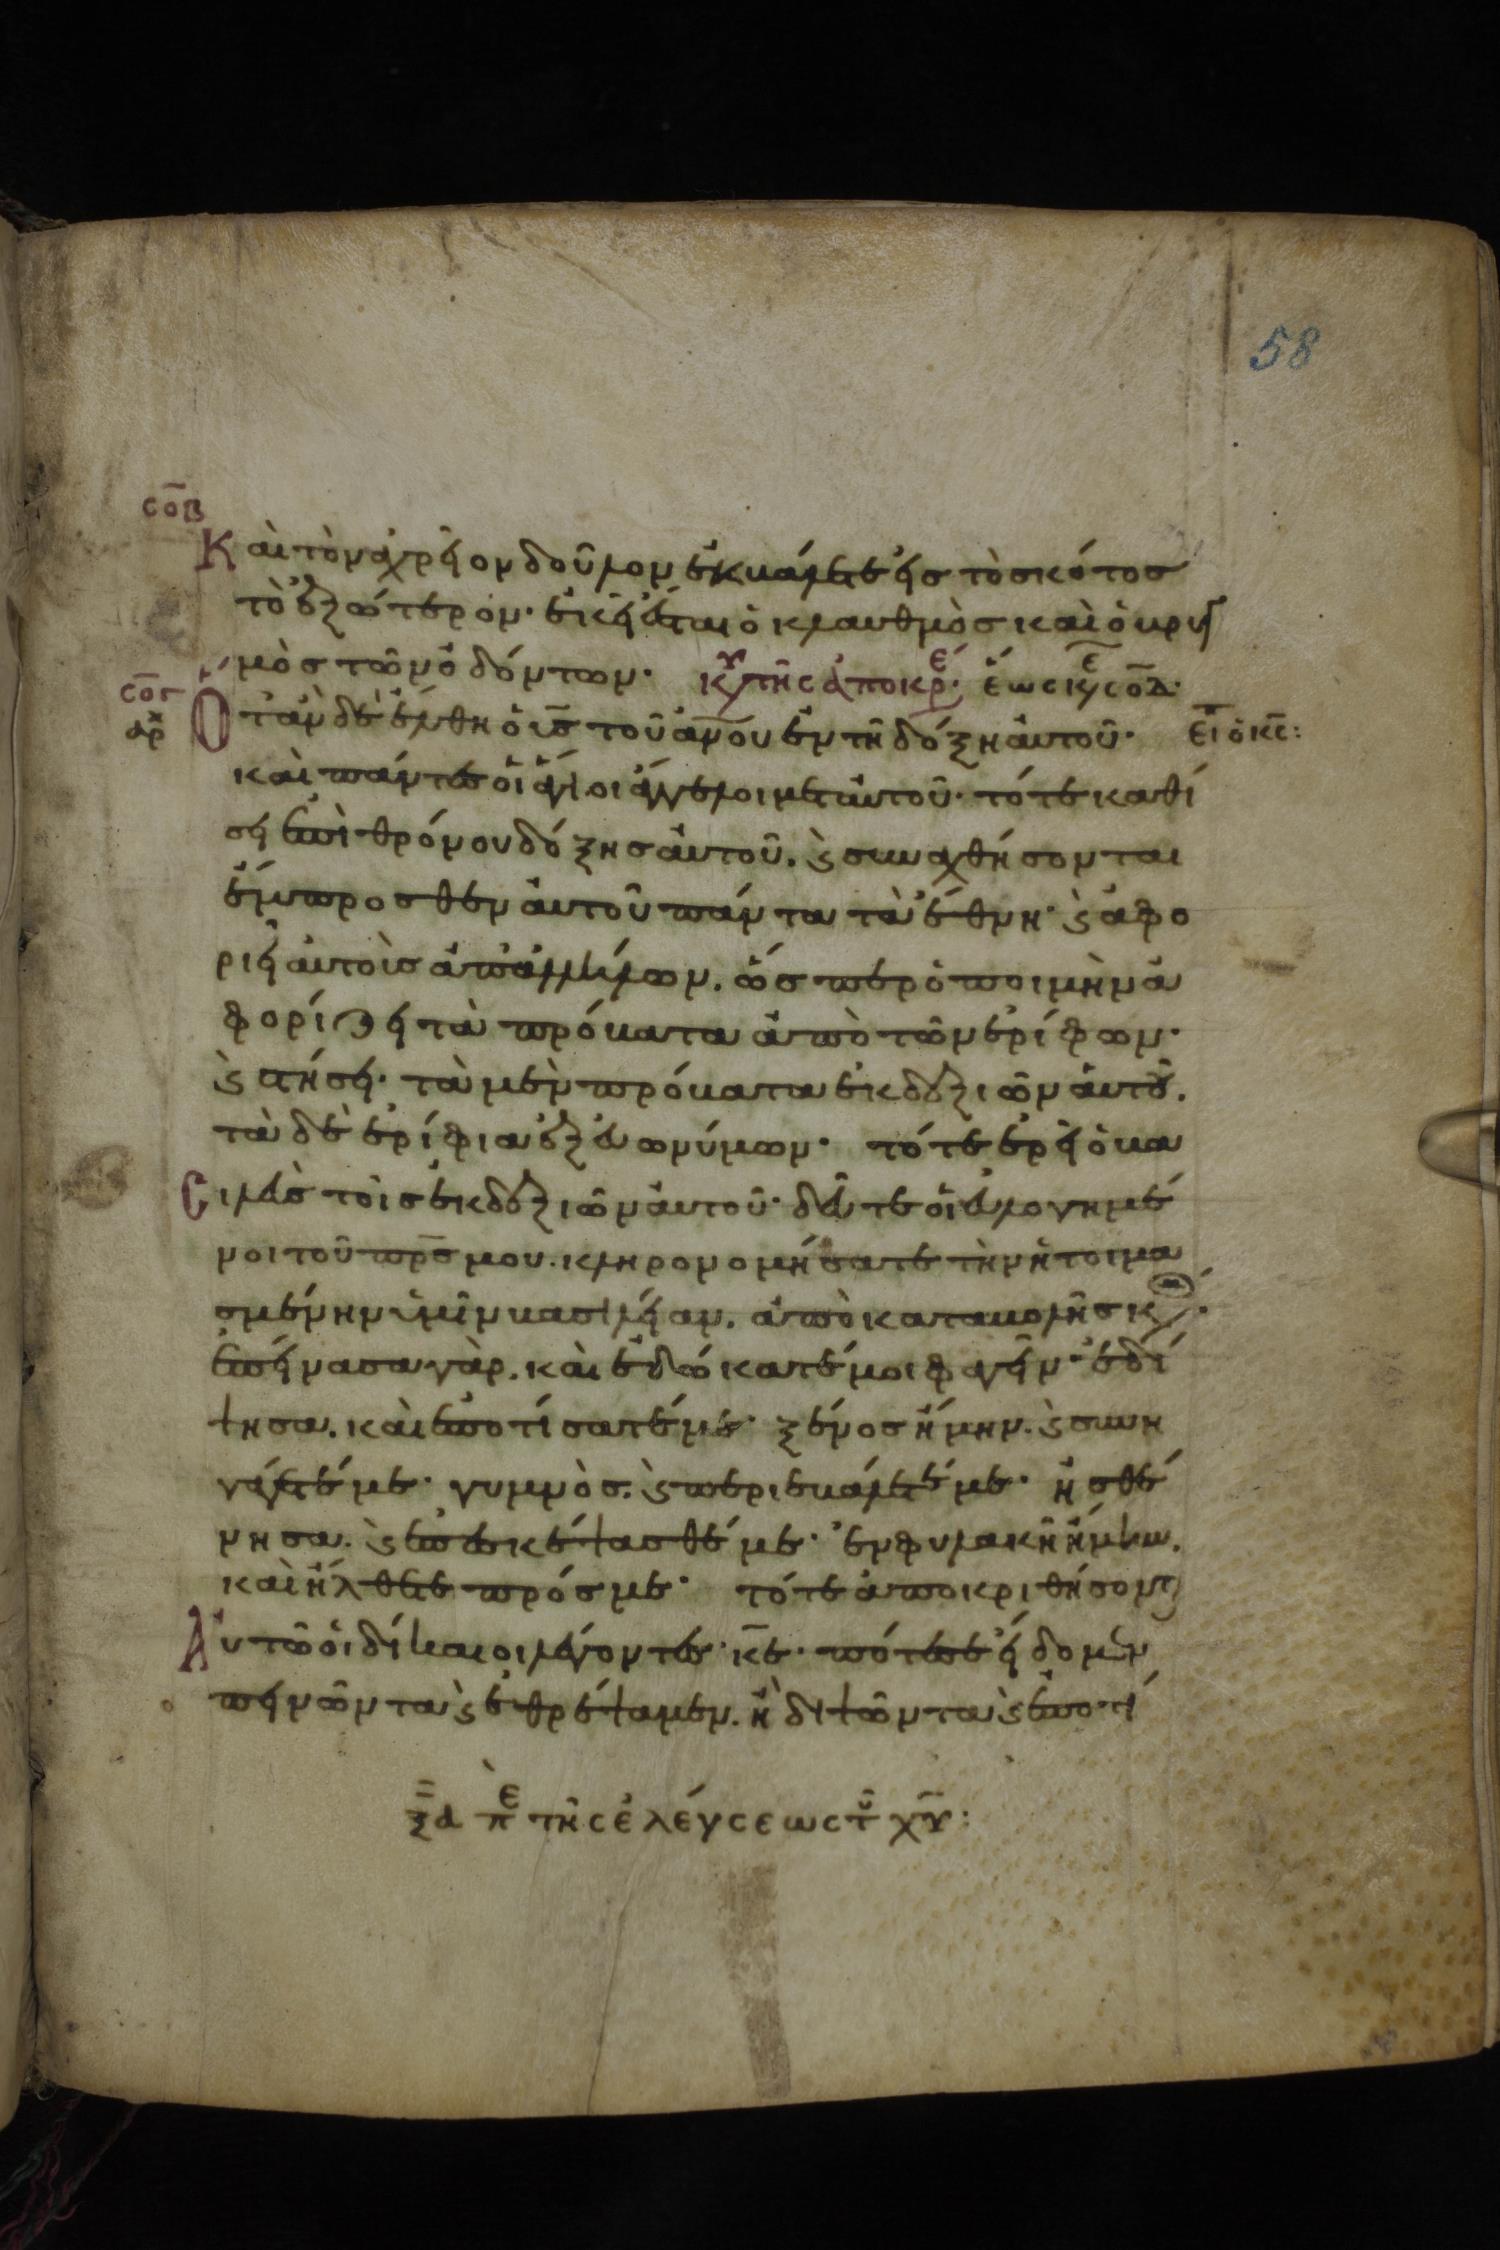 58
σοβ
Καὶ τὸν ἀχρεῖον δοῦλον ἐκβάλετε εἰς τὸ σκότος
τὸ ἐξώτερον· ἐκεῖ ἔσται ὁ κλαυθμὸς καὶ ὁ βρυγ
μὸς τῶν ὀδόντων· κυ τῆς ἀποκρ ε ἕως κυ ε σοδ·
σογ
αρχ
Ὅταν δὲ ἔλθη ὁ ῡς τοῦ ἀνου ἐν τῆ δόξη αὐτοῦ· εἶπ ὁ κς:
καὶ πάντες οἱ ἅγιοι ἄγγελοι μετ αὐτοῦ· τότε καθί
σει ἐπὶ θρόνου δόξης αὐτοῦ. ϛ συναχθήσονται
ἔμπροσθεν αὐτοῦ πάντα τὰ ἔθνη· ϛ ἀφο
ριεῖ αὐτοὺς ἀπ ἀλλήλων. ὥσπερ ὁ ποιμὴν ἀ
φορίζει τὰ πρόβατα ἀπὸ τῶν ἐρίφων·
ϛ στήσει· τὰ μὲν πρόβατα ἐκ δεξιῶν αὐτοῦ.
τὰ δὲ ἐρίφια ἐξ εὐωνύμων· τότε ἐρεῖ ὁ βα
σιλεὺς τοῖς ἐκ δεξιῶν αὐτοῦ· δεῦτε οἱ εὐλογημέ
νοι τοῦ πρς μου. κληρονομήσατε τὴν ἡτοιμα
σμένην ὑμῖν βασιλείαν. ἀπὸ καταβολῆς κ
ἐπείνασα γάρ. καὶ ἐδώκατέ μοι φαγεῖν· ἐδί
ψησα. καὶ ἐποτίσατέ με· ξένος ἤμην. ϛ συνη
γάγετέ με· γυμνὸς. ϛ περιεβάλετέ με· ἠσθέ
νησα. ϛ ἐπεσκέψασθέ με· ἐν φυλακῆ ἤμην.
καὶ ἤλθετε πρός με· τότε ἀποκριθήσοντ
Αὐτῶ οἱ δίκαιοι λέγοντες· κε· πότε σὲ εἴδομεν
πεινῶντα ϛ ἐθρέψαμεν. ἢ διψῶντα ϛ ἐποτί
ξα πε τῆς ἐλεύσεως τοῦ χυ: